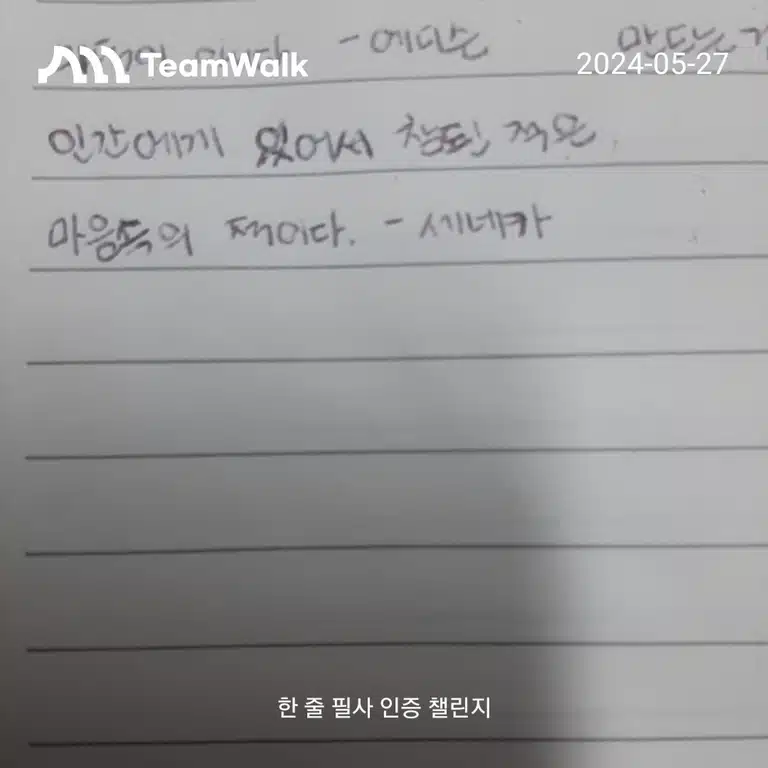 - 에디슨 만드는
TeamWalk 2024-05-27
인간에게 있어서 참된 적은
마음속의 적이다. - 세네카
한 줄 필사 인증 챌린지